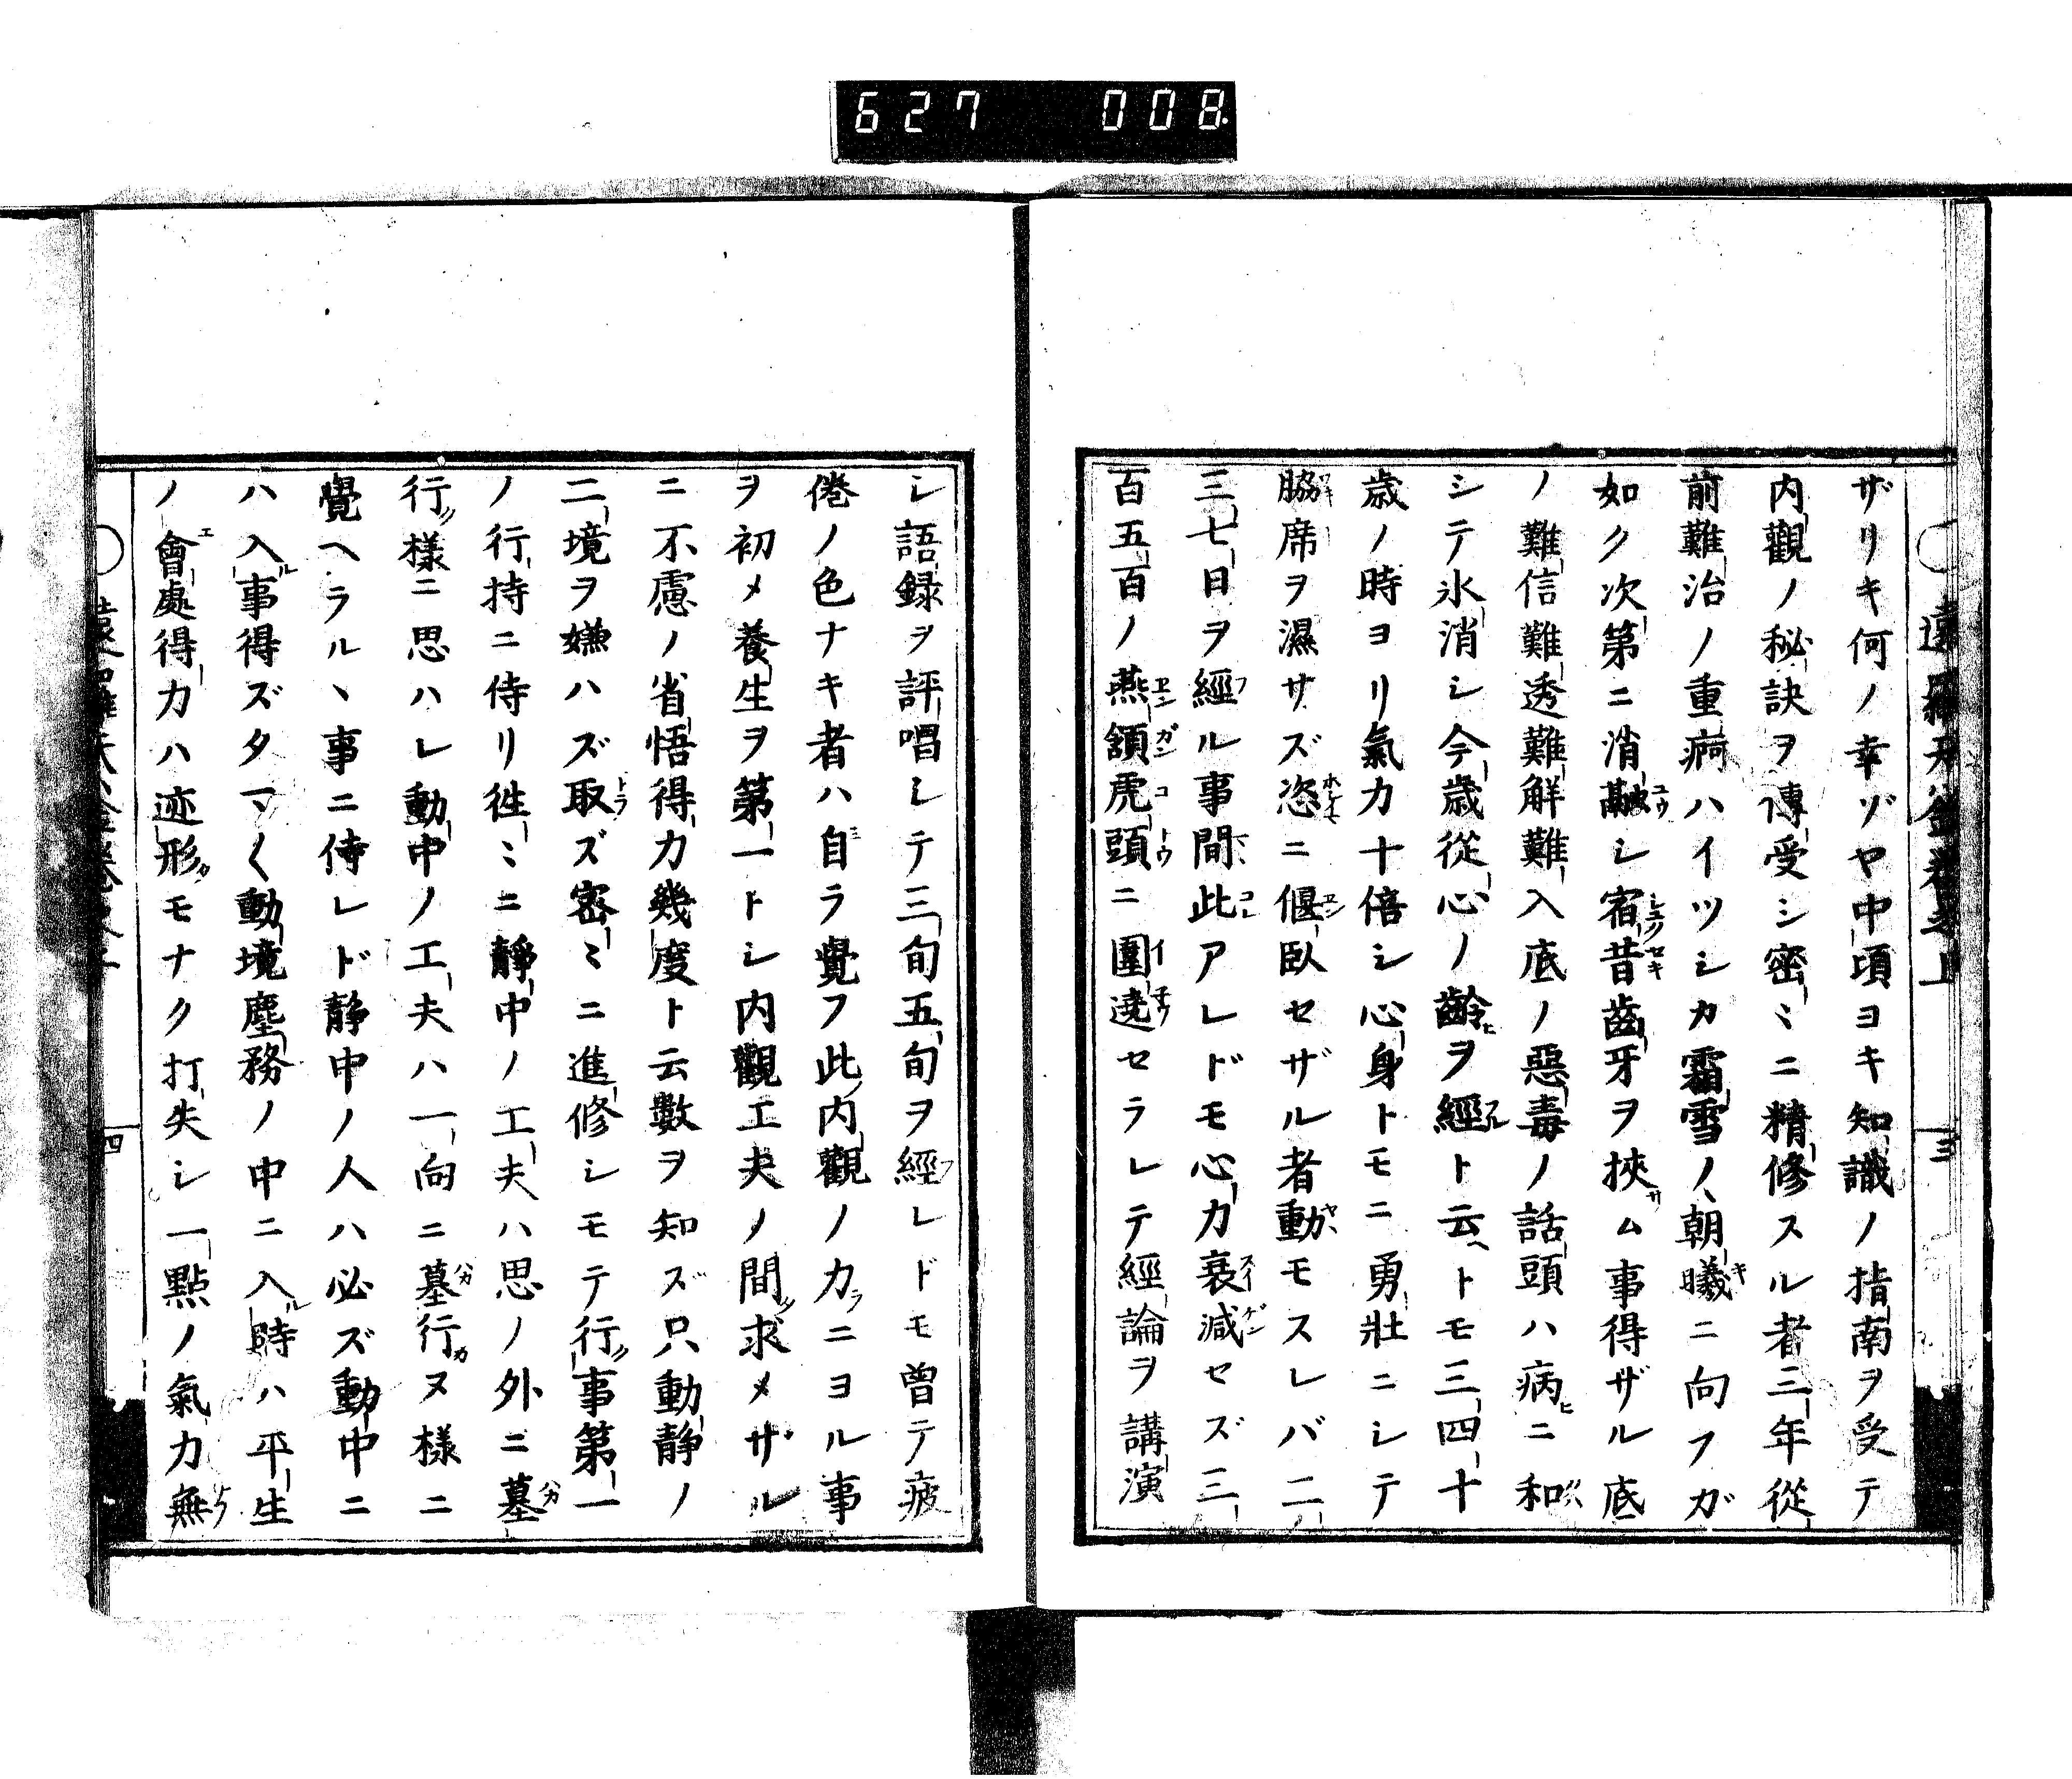 627 008
ザリキ何ノ幸ゾヤ中頃ヨキ知識ノ指南ヲ受テ
内觀ノ秘訣ヲ傳受シ密〻ニ精修スル者三年從
前難治ノ重痾ハイツシカ霜雪ノ朝曦ニ向フガ
如ク次第ニ消融シ宿昔齒牙ヲ挾ム事得ザル底
ノ難信難透難解難入底ノ惡毒ノ話頭ハ病ニ和
シテ氷消シ今歳從心ノ齡ヲ經ト云ヘトモ三四十
歳ノ時ヨリ氣力十倍シ心身トモニ勇壯ニシテ
脇席ヲ濕サズ恣ニ偃臥セザル者動モスレバ二
三七日ヲ經ル事間此アレドモ心力衰減セズ三
百五百ノ燕頷虎頭ニ圍遶セラレテ經論ヲ講演
シ語録ヲ評唱シテ三旬五旬ヲ經レドモ曽テ疲
倦ノ色ナキ者ハ自ラ覺フ此内觀ノ力ニヨル事
ヲ初メ養生ヲ第一トシ内觀工夫ノ間求メザル
ニ不慮ノ省悟得力幾度ト云數ヲ知ズ只動静ノ
二境ヲ嫌ハズ取ズ密〻ニ進修シモテ行事第一
ノ行持ニ侍リ徃〻ニ靜中ノ工夫ハ思ノ外ニ墓
行樣ニ思ハレ動中ノ工夫ハ一向ニ墓行ヌ樣ニ
覺ヘラルヽ事ニ侍レド静中ノ人ハ必ズ動中ニ
ハ入事得ズタマ〱動境塵務ノ中ニ入時ハ平生
ノ會處得力ハ迹形モナク打失シ一點ノ氣力無
三
四